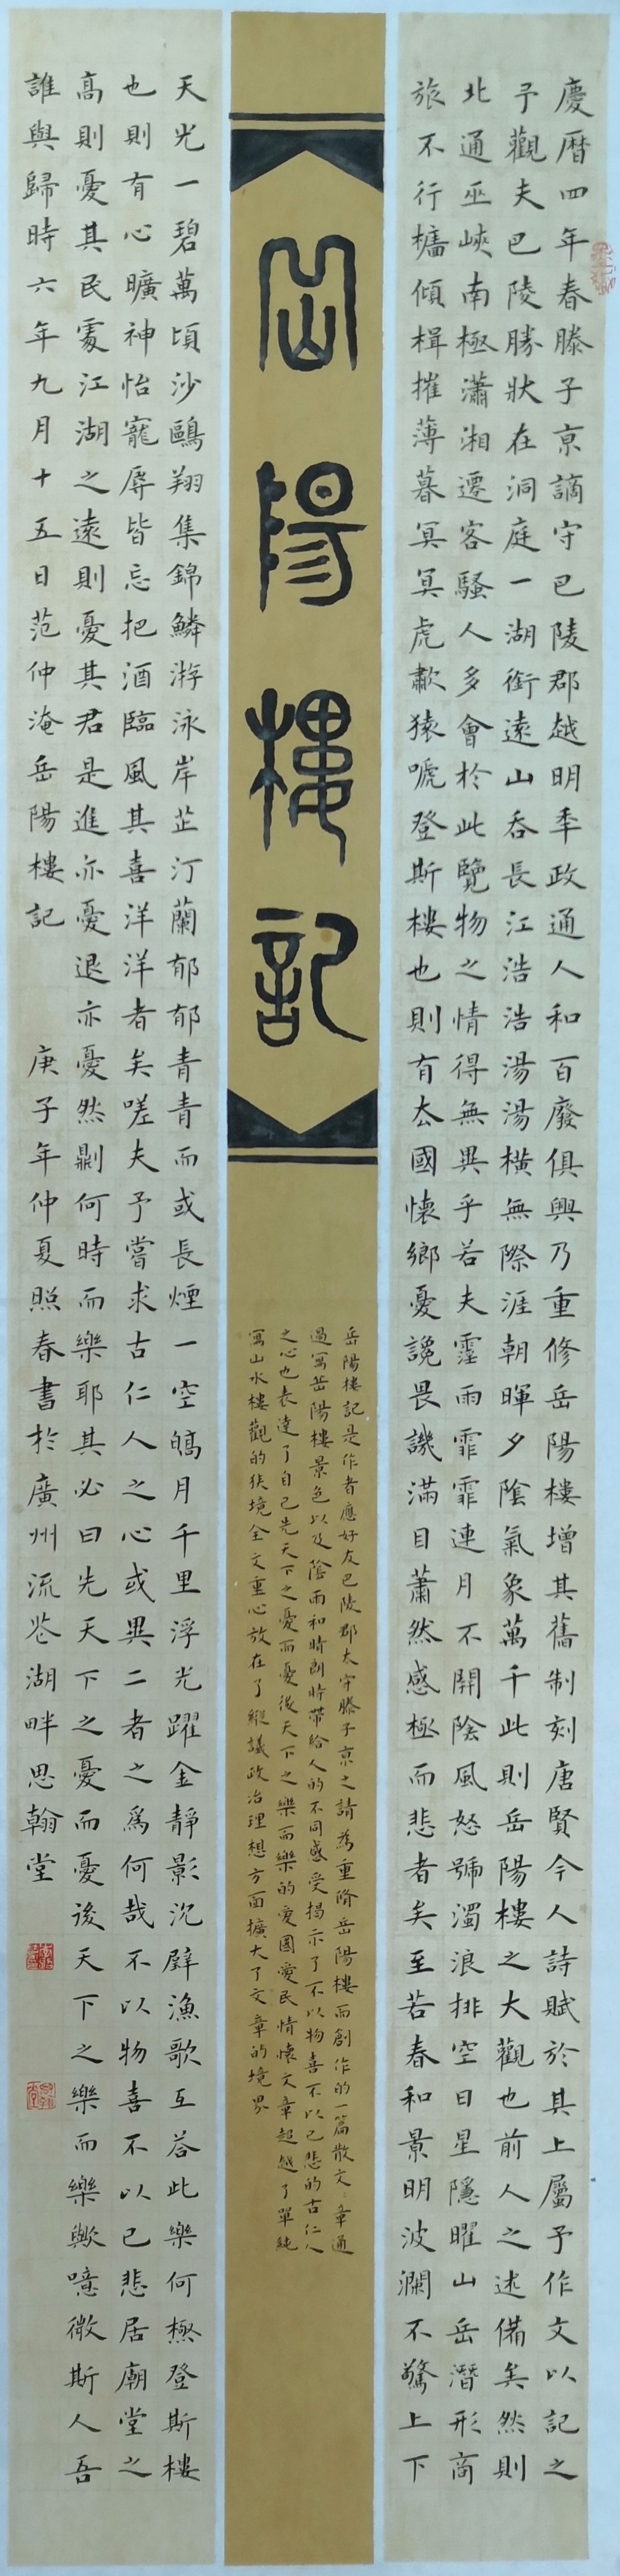 慶曆四年春滕子京謫守巴陵郡越明年政通人和百廢俱興乃重修岳陽樓增其舊制刻唐賢今人詩賦於其上屬予作文以記之
予觀夫巴陵勝狀在洞庭一湖銜遠山吞長江浩浩湯湯橫無際涯朝暉夕陰氣象萬千此則岳陽樓之大觀也前人之述備矣然則
北通巫峽南極瀟湘遷客騷人多會於此覽物之情得無異乎若夫霪雨霏霏連月不開陰風怒號濁浪排空日星隱曜山岳潛形商
旅不行檣傾楫摧薄暮冥冥虎嘯猿啼登斯樓也則有去國懷鄉憂讒畏譏滿目蕭然感極而悲者矣至若春和景明波瀾不驚上下
岳陽樓記
岳陽樓記是作者應好友巴陵郡太守滕子京之請為重脩岳陽樓而創作的一篇散文文章通
過寫岳陽樓景色以及陰雨和晴朗時帶給人的不同感受揭示了不以物喜不以己悲的古仁人
之心也表達了自己先天下之憂而憂後天下之樂而樂的愛國愛民情懷文章超越了單純
寫山水樓觀的狹境全文重心放在了縱議政治理想方面擴大了文章的境界
天光一碧萬頃沙鷗翔集錦鱗游泳岸芷汀蘭郁郁青青而或長煙一空皜月千里浮光躍金靜影沉璧漁歌互荅此樂何極登斯樓
也則有心曠神怡寵辱皆忘把酒臨風其喜洋洋者矣嗟夫予嘗求古仁人之心或異二者之為何哉不以物喜不以己悲居廟堂之
高則憂其民處江湖之遠則憂其君是進亦憂退亦憂然則何時而樂耶其必曰先天下之憂而憂後天下之樂而樂歟噫微斯人吾
誰與歸時六年九月十五日范仲淹岳陽樓記 庚子年仲夏照春書於廣州流花湖畔思翰堂